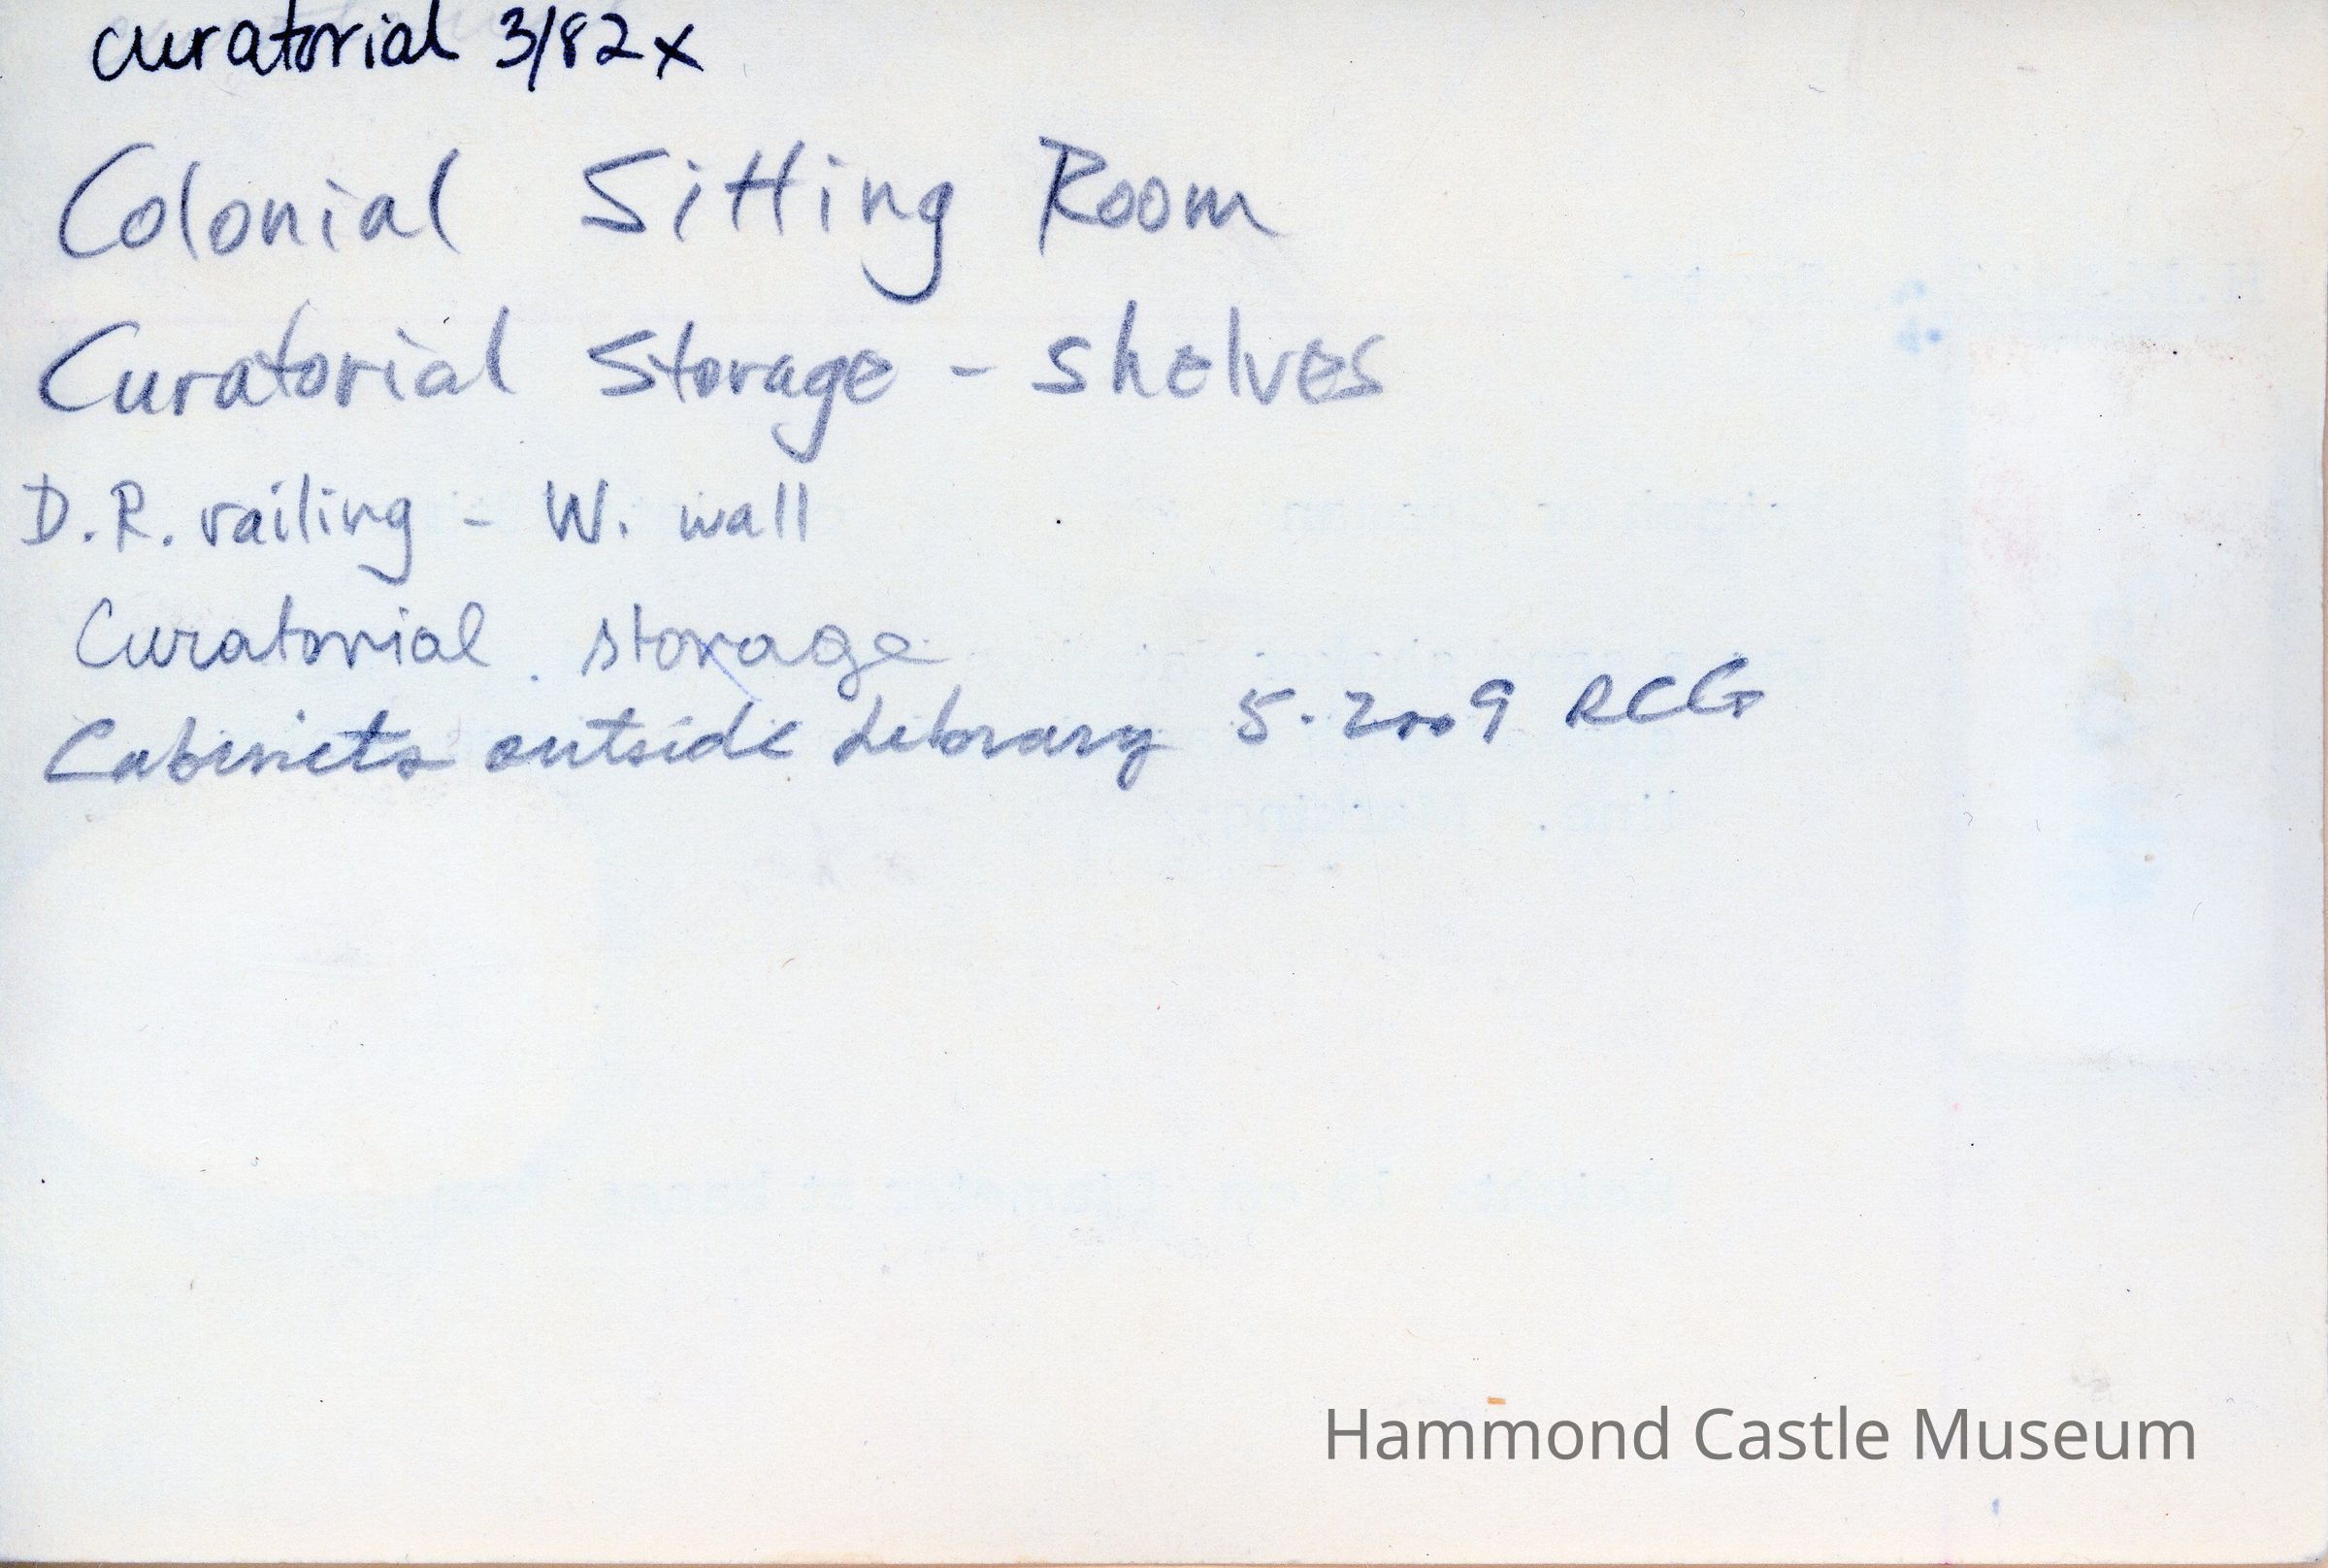 curatorial 3/82x
Colonial Sitting Room
Curatorial Storage - shelves
D.R. railing - W. wall
Curatorial storage
Cabinets outside Library 5.2009 RCG
Hammond Castle Museum